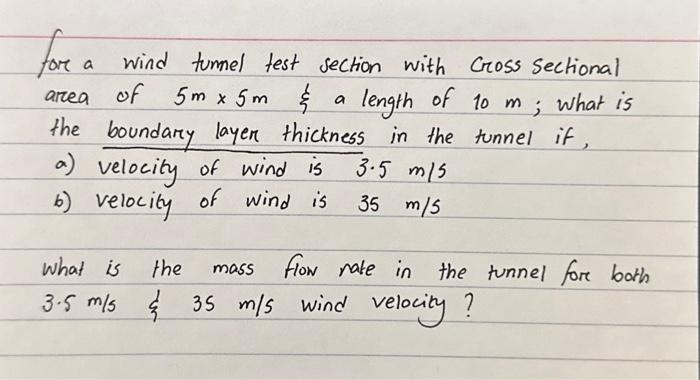 for a wind tunnel test section with Cross Sectional
area of 5m x 5m & a length of 10 m ; what is
the boundary layer thickness in the tunnel if,
a) velocity of wind is 3.5 m/s
b) velocity of wind is 35 m/s
what is the mass flow rate in the tunnel for both
3.5 m/s & 35 m/s wind velocity ?